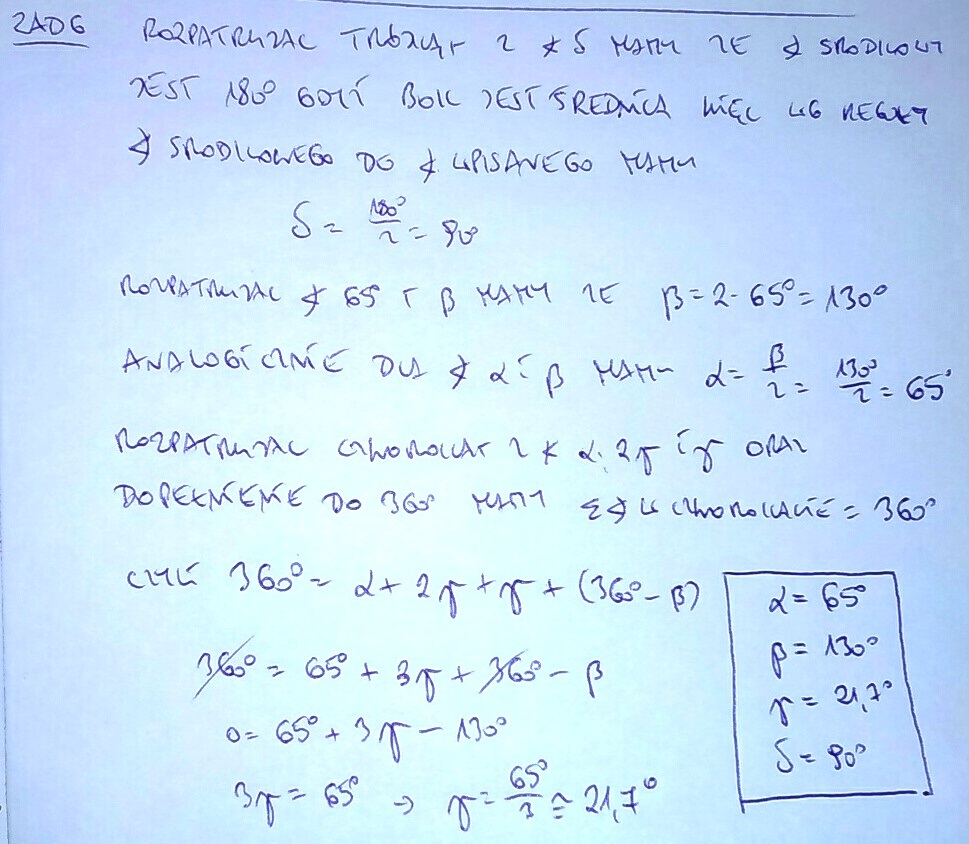 ZAD6 ROZPATRUJAC TRÓJKĄT Z ∢ δ MAMY ZE ∢ SRODKOWY
JEST 180° GDYŻ BOK JEST ŚREDNICĄ WIĘC WG REGUŁY
∢ SRODKOWEGO DO ∢ WPISANEGO MAMY
δ = 180°/2 = 90°
ROZPATRUJAC ∢ 65° I β MAMY ZE β = 2·65° = 130°
ANALOGICZNIE DLA ∢ α I β MAMY α = β/2 = 130°/2 = 65°
ROZPATRUJAC CZWOROKAT Z ∢ α, 2γ i γ ORAZ
DOPEŁNIENIE DO 360° MAMY Σ∢ W CZWOROKĄCIE = 360°
CZYLI 360° = α + 2γ + γ + (360° - β)
360° = 65° + 3γ + 360° - β
0 = 65° + 3γ - 130°
3γ = 65° → γ = 65°/3 ≅ 21,7°
α = 65°
β = 130°
γ = 21,7°
δ = 90°